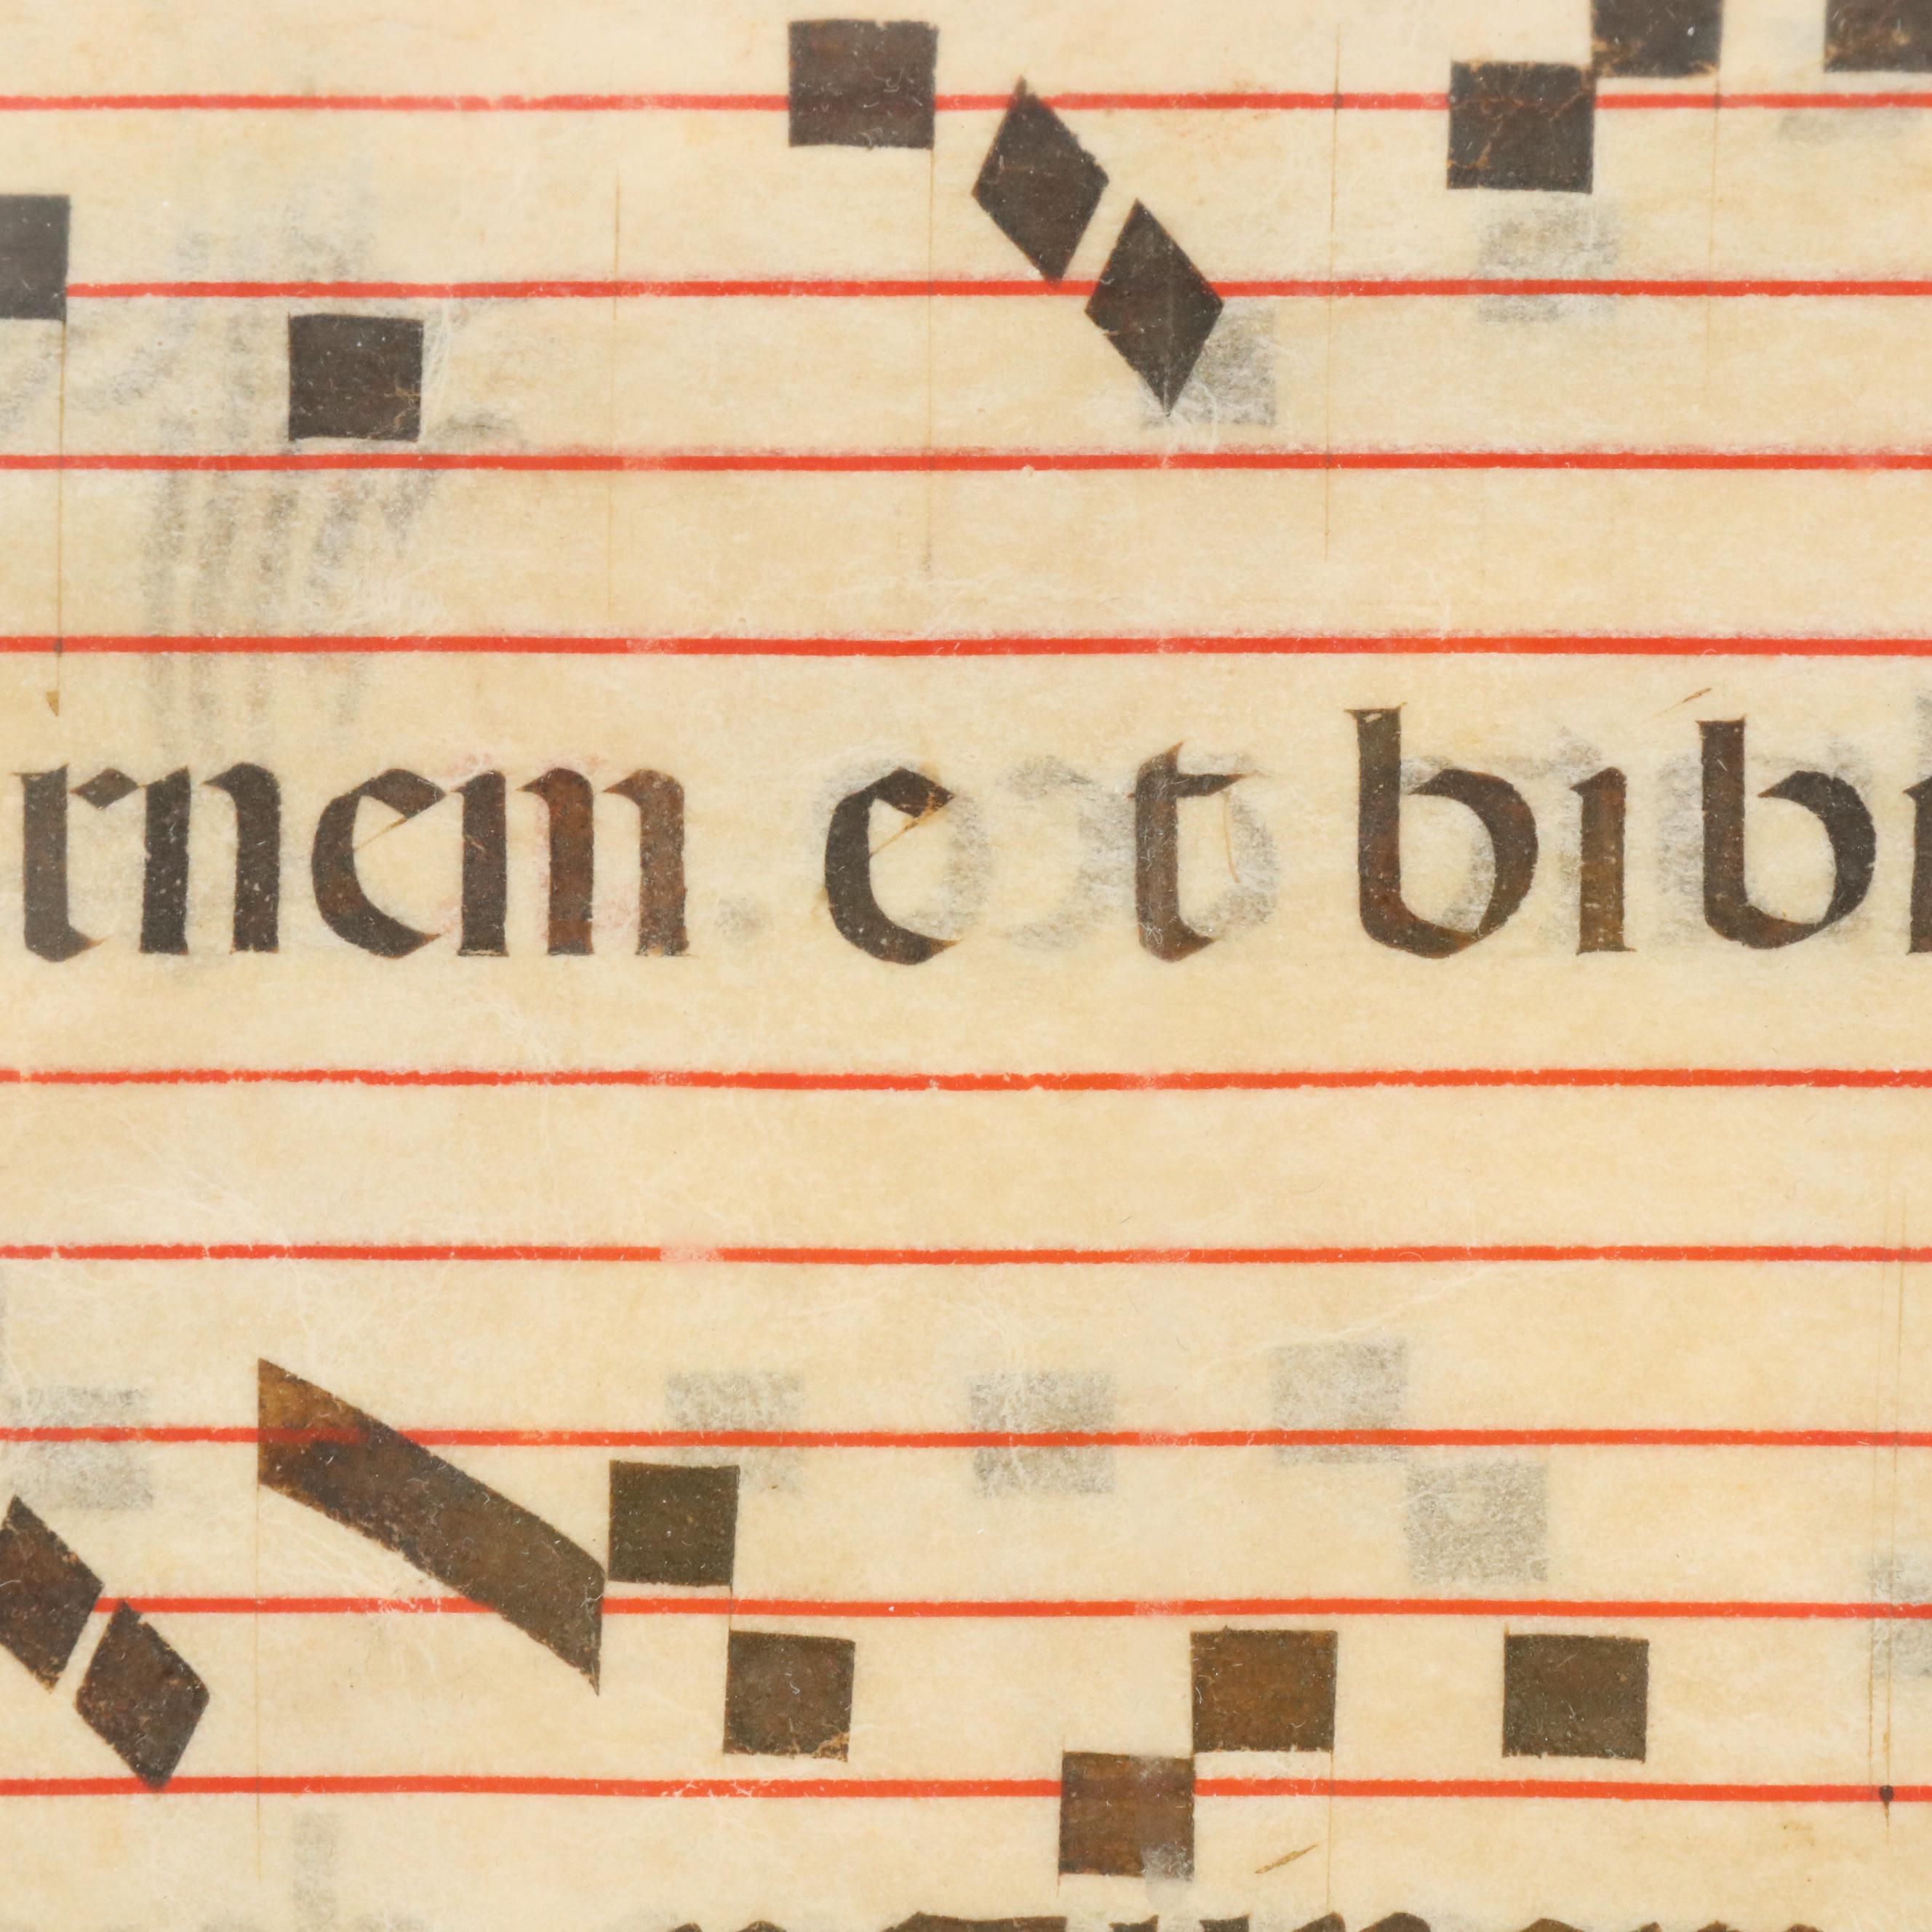 rnem et bibi